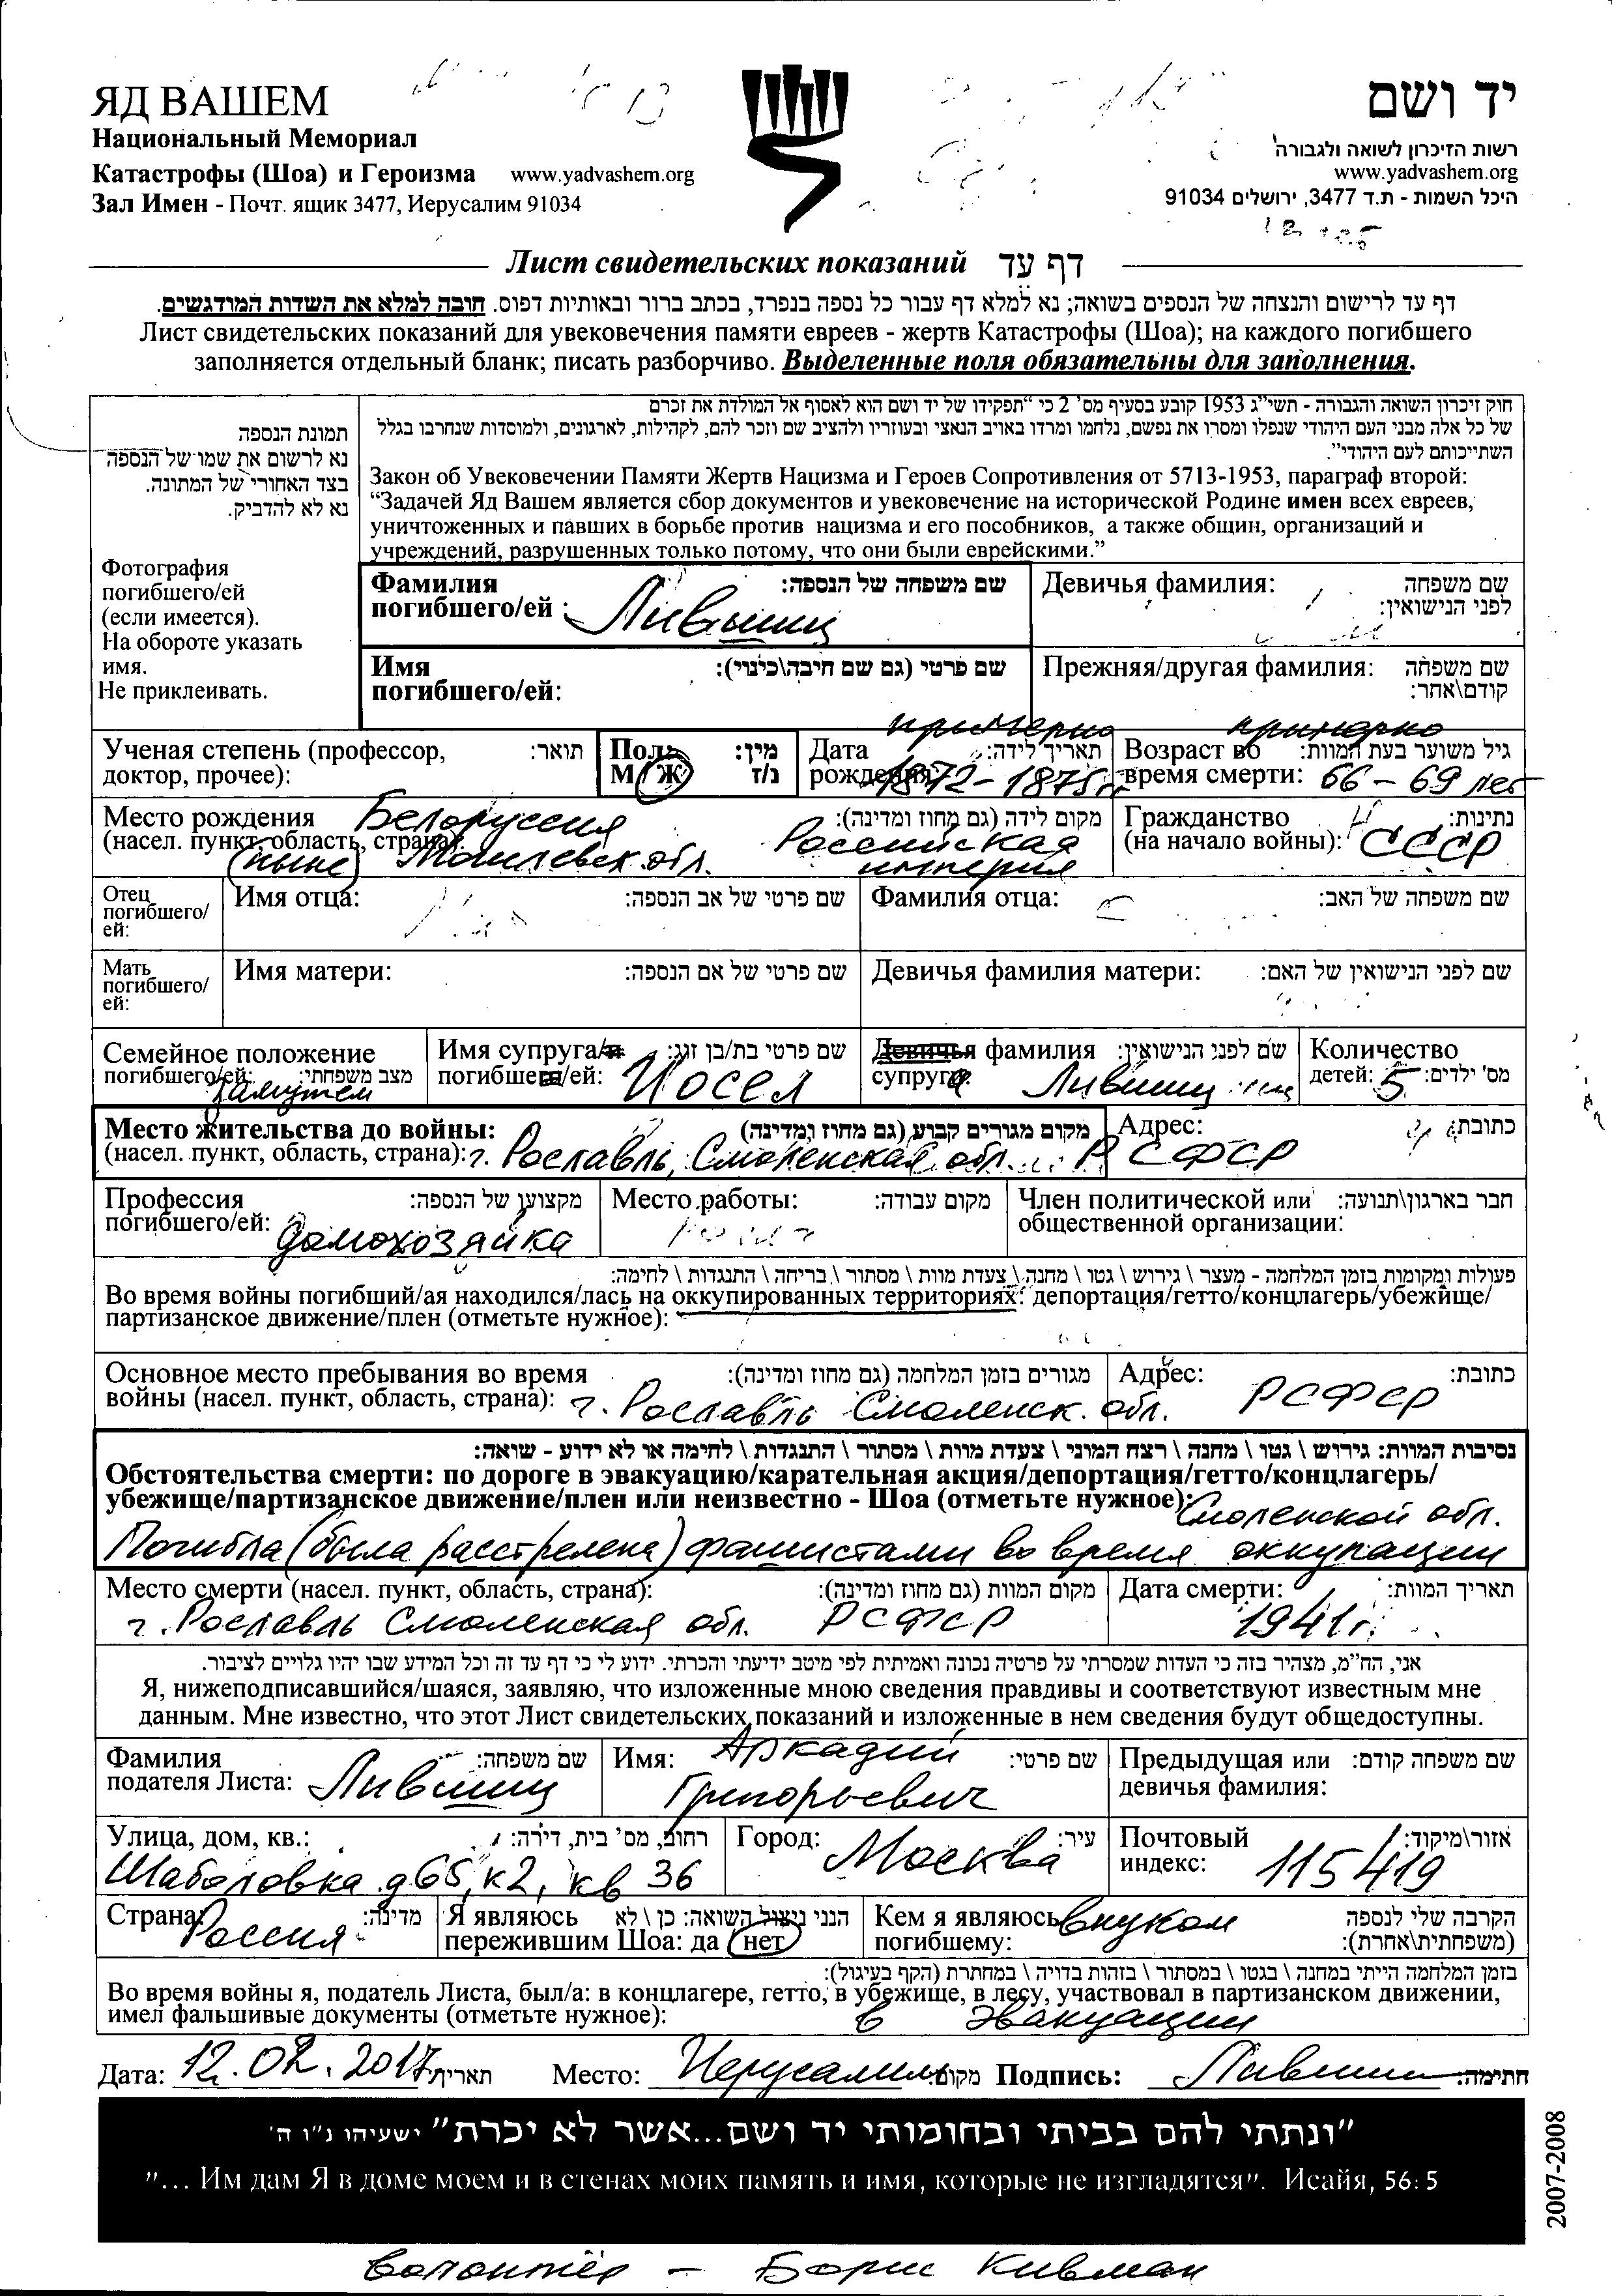 ЯД ВАШЕМ
Национальный Мемориал
Катастрофы (Шоа) и Героизма www.yadvashem.org
Зал Имен - Почт. ящик 3477, Иерусалим 91034
יד ושם
רשות הזיכרון לשואה ולגבורה
www.yadvashem.org
היכל השמות - ת.ד 3477, ירושלים 91034
Лист свидетельских показаний דף עד
דף עד לרישום והנצחה של הנספים בשואה; נא למלא דף עבור כל נספה בנפרד, בכתב ברור ובאותיות דפוס. חובה למלא את השדות המודגשים.
Лист свидетельских показаний для увековечения памяти евреев - жертв Катастрофы (Шоа); на каждого погибшего
заполняется отдельный бланк; писать разборчиво. Выделенные поля обязательны для заполнения.
תמונת הנספה
נא לרשום את שמו של הנספה
בצד האחורי של המתונה.
נא לא להדביק.
Фотография
погибшего/ей
(если имеется).
На обороте указать
имя.
Не приклеивать.
חוק זיכרון השואה והגבורה - תשי"ג 1953 קובע בסעיף מס' 2 כי "תפקידו של יד ושם הוא לאסוף אל המולדת את זכרם
של כל אלה מבני העם היהודי שנפלו ומסרו את נפשם, נלחמו ומרדו באויב הנאצי ובעוזריו ולהציב שם וזכר להם, לקהילות, לארגונים, ולמוסדות שנחרבו בגלל
השתייכותם לעם היהודי".
Закон об Увековечении Памяти Жертв Нацизма и Героев Сопротивления от 5713-1953, параграф второй:
“Задачей Яд Вашем является сбор документов и увековечение на исторической Родине имен всех евреев,
уничтоженных и павших в борьбе против нацизма и его пособников, а также общин, организаций и
учреждений, разрушенных только потому, что они были еврейскими.”
Фамилия שם משפחה של הנספה:
погибшего/ей : Лившиц
Девичья фамилия: שם משפחה
לפני הנישואין:
Имя שם פרטי (גם שם חיבה\כינוי):
погибшего/ей:
Прежняя/другая фамилия: שם משפחה
קודם\אחר:
Ученая степень (профессор, תואר:
доктор, прочее):
Пол: מין:
М/Ж נ/ז
примерно
Дата תאריך לידה:
рождения: 1872-1875гг
примерно
Возраст во גיל משוער בעת המוות:
время смерти: 66-69 лет
Место рождения Белоруссия מקום לידה (גם מחוז ומדינה):
(насел. пункт, область, страна): (ныне) Могилевск. обл. Российская
империя
Гражданство נתינות:
(на начало войны): СССР
Отец
погибшего/
ей:
Имя отца: שם פרטי של אב הנספה:
Фамилия отца: שם משפחה של האב:
Мать
погибшего/
ей:
Имя матери: שם פרטי של אם הנספה:
Девичья фамилия матери: שם לפני הנישואין של האם:
Семейное положение
погибшего/ей: מצב משפחתי:
Замужем
Имя супруга/и שם פרטי בת/בן זוג:
погибшего/ей: Иосел
Девичья фамилия שם לפני הנישואין:
супруга Лившиц
Количество
детей: 5 מס' ילדים:
Место жительства до войны: מקום מגורים קבוע (גם מחוז ומדינה)
(насел. пункт, область, страна): г. Рославль, Смоленская обл. РСФСР
Адрес: כתובת:
Профессия מקצוען של הנספה:
погибшего/ей: домохозяйка
Место работы: מקום עבודה:
Член политической или חבר בארגון\תנועה:
общественной организации:
פעולות ומקומות בזמן המלחמה - מעצר \ גירוש \ גטו \ מחנה \ צעדת מוות \ מסתור \ בריחה \ התנגדות \ לחימה:
Во время войны погибший/ая находился/лась на оккупированных территориях: депортация/гетто/концлагерь/убежище/
партизанское движение/плен (отметьте нужное):
Основное место пребывания во время מגורים בזמן המלחמה (גם מחוז ומדינה):
войны (насел. пункт, область, страна): г. Рославль Смоленск. обл.
Адрес: כתובת:
РСФСР
נסיבות המוות: גירוש \ גטו \ מחנה \ רצח המוני \ צעדת מוות \ מסתור \ התנגדות \ לחימה או לא ידוע - שואה:
Обстоятельства смерти: по дороге в эвакуацию/карательная акция/депортация/гетто/концлагерь/
убежище/партизанское движение/плен или неизвестно - Шоа (отметьте нужное):
Смоленской обл.
Погибла (была расстрелена) фашистами во время оккупации
Место смерти (насел. пункт, область, страна): מקום המוות (גם מחוז ומדינה):
г. Рославль Смоленская обл. РСФСР
Дата смерти: תאריך המוות:
1941г.
אני, הח"מ, מצהיר בזה כי העדות שמסרתי על פרטיה נכונה ואמיתית לפי מיטב ידיעתי והכרתי. ידוע לי כי דף עד זה וכל המידע שבו יהיו גלויים לציבור.
Я, нижеподписавшийся/шаяся, заявляю, что изложенные мною сведения правдивы и соответствуют известным мне
данным. Мне известно, что этот Лист свидетельских показаний и изложенные в нем сведения будут общедоступны.
Фамилия שם משפחה:
подателя Листа: Лившиц
Имя: Аркадий שם פרטי:
Григорьевич
Предыдущая или שם משפחה קודם:
девичья фамилия:
Улица, дом, кв.: רחוב, מס' בית, דירה:
Шаболовка д65, к2, кв 36
Город: עיר:
Москва
Почтовый אזור\מיקוד:
индекс: 115419
Страна: מדינה:
Россия
Я являюсь הנני ניצול השואה: כן \ לא
пережившим Шоа: да /нет
Кем я являюсь внуком הקרבה שלי לנספה
погибшему: (משפחתית\אחרת):
בזמן המלחמה הייתי במחנה \ בגטו \ במסתור \ בזהות בדויה \ במחתרת (הקף בעיגול):
Во время войны я, податель Листа, был/а: в концлагере, гетто, в убежище, в лесу, участвовал в партизанском движении,
имел фальшивые документы (отметьте нужное): в эвакуации
Дата: 12.02.2017 תאריך Место: Иерусалим מקום Подпись: Лившиц חתימה:
"ונתתי להם בביתי ובחומותי יד ושם...אשר לא יכרת" ישעיהו נ"ו ה'
"... Им дам Я в доме моем и в стенах моих память и имя, которые не изгладятся". Исайя, 56:5
2007-2008
Волонтёр - Борис Кивман